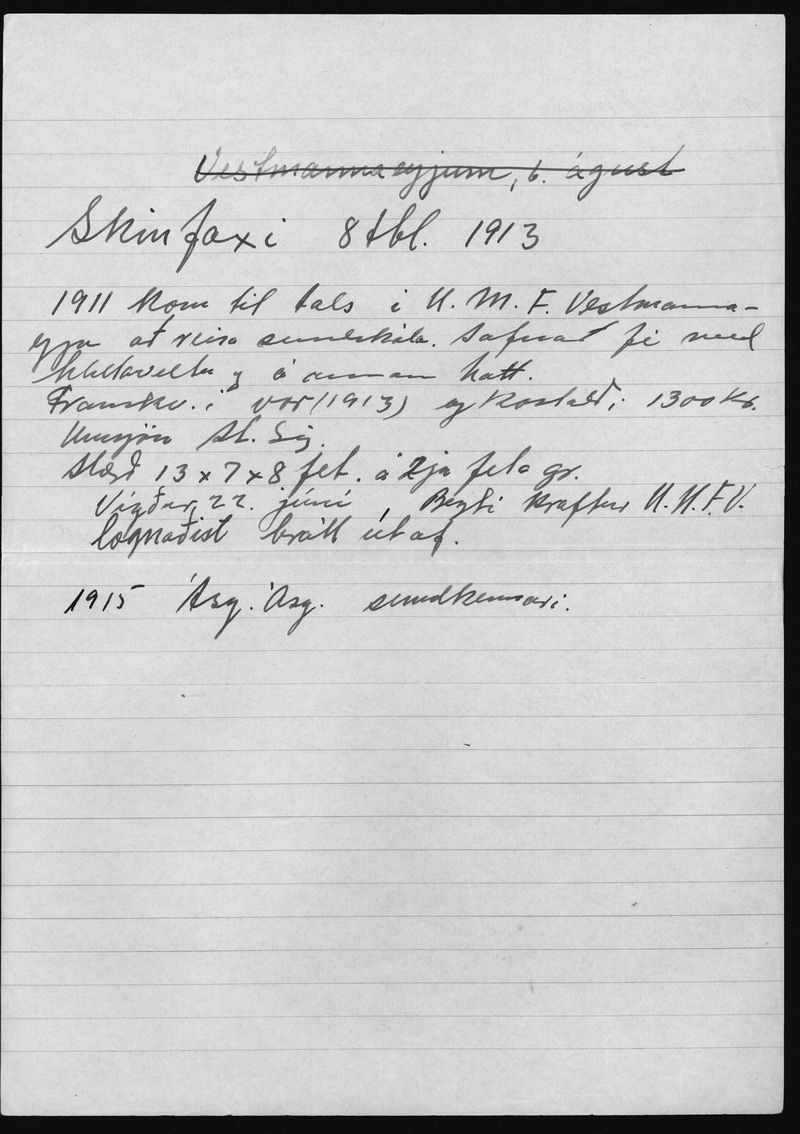 Vestmannaeyjum, 6. ágúst
Skinfaxi 8 tbl. 1913
1911 kom til tals i U. M. F. Vestmanna-
eyja að reisa sundskála. Safnað fé með
hlutaveltu og á annan hátt.
Framkv. i vor (1913) og kostaði 1300 kr.
Umsjón St. Sig.
Stærð 13 x 7 x 8 fet. á 2ja feta gr.
Vígður 22. júní, Beyti kraftur U. M. F. V.
lognaðist brátt útaf.
1915 Ásg. Ásg. sundkennari.